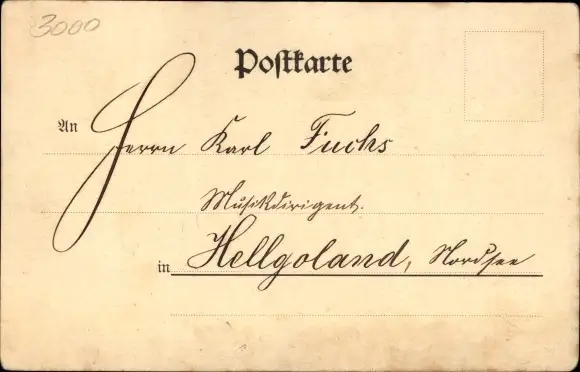 3000
Postkarte
An
Herrn Karl Fuchs
Musikdirigent.
in Hellgoland, Nordsee